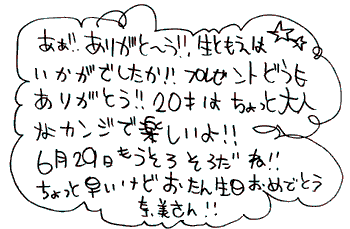 あぁ!! ありがとへう!!, 生ともえは
いかがでしたか!! プレゼントどうも
ありがとう!! 20才は ちょっと大人
なカンジで楽しいよ!!
6月29日もうそろそろだね!!
ちょっと早いけどおたん生日おめでとう
奈美さん!!